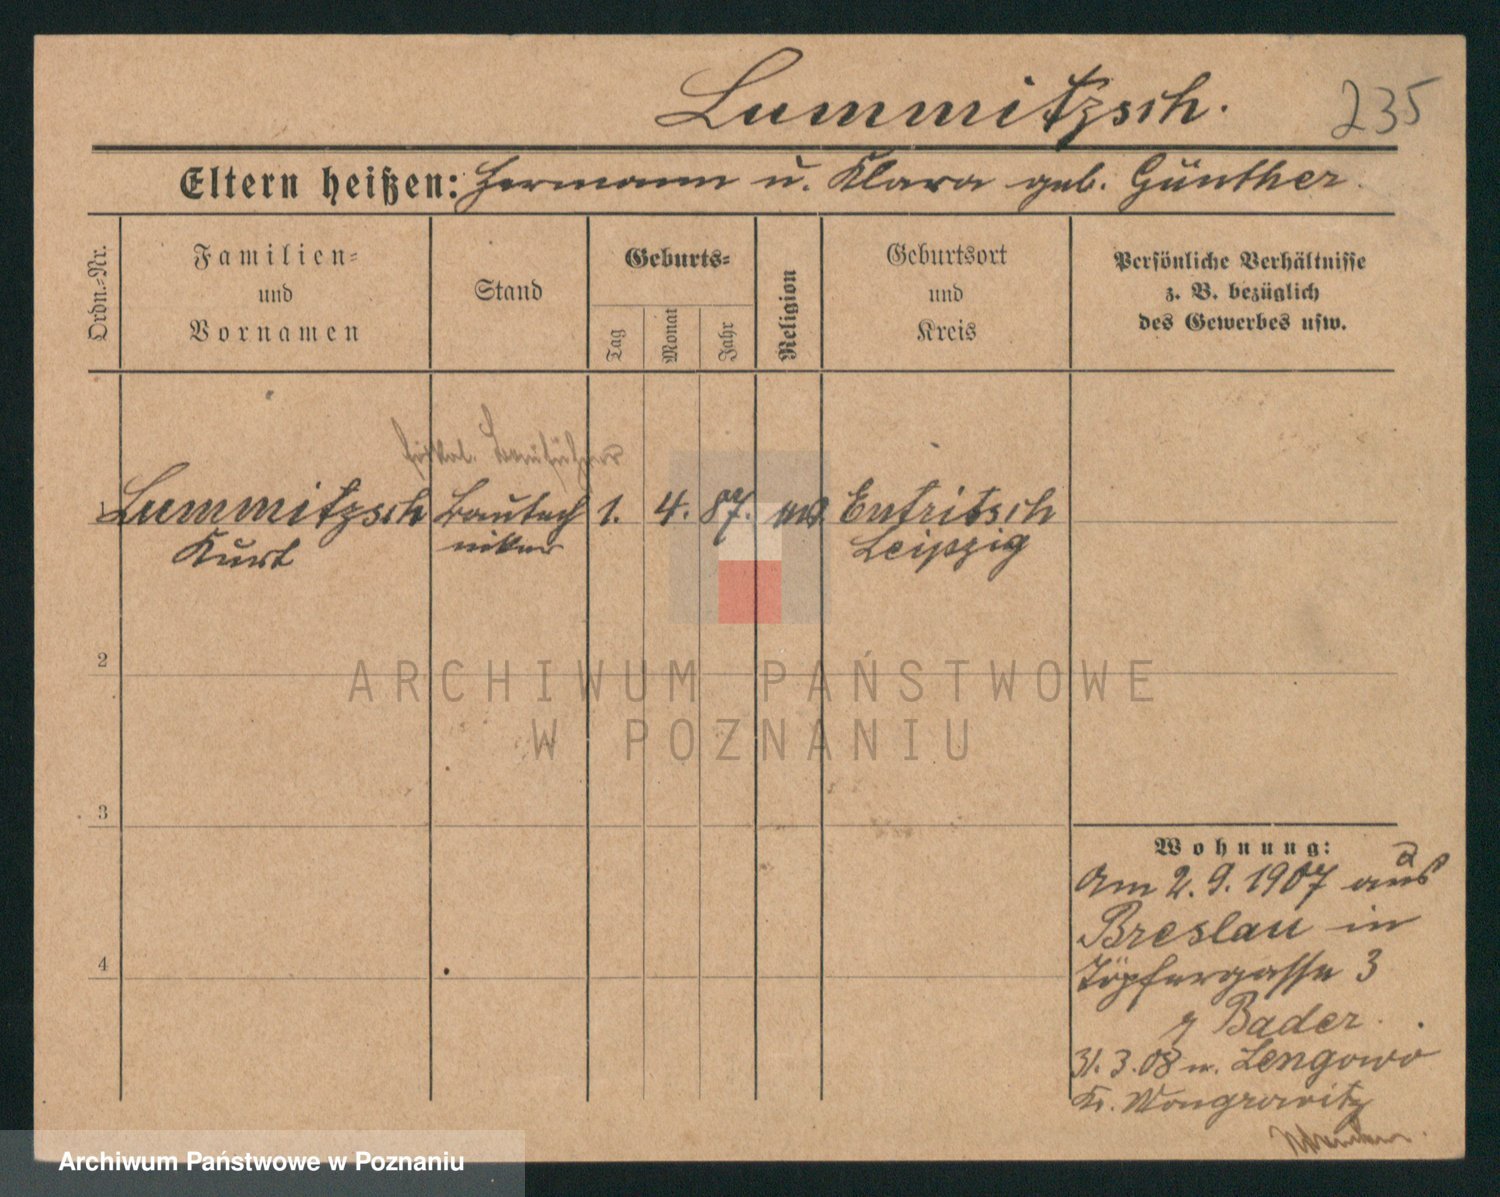 Lummitzsch.
235
Eltern heißen: Hermann u. Klara geb. Günther.
Ordn.-Nr.
Familien-
und
Vornamen
Stand
Geburts-
Tag
Monat
Jahr
Religion
Geburtsort
und
Kreis
Persönliche Verhältnisse
z. B. bezüglich
des Gewerbes usw.
Bauführer
1 Lummitzsch Bautech 1. 4. 87. Eutritsch
Kurt niker Leipzig
2
ARCHIWUM PAŃSTWOWE
W POZNANIU
3
4
Wohnung:
Am 2. 9. 1907 aus
Breslau in
Töpfergasse 3
Bader.
31. 3. 08 n. Lengowo
Kr. Wongrowitz
Archiwum Państwowe w Poznaniu